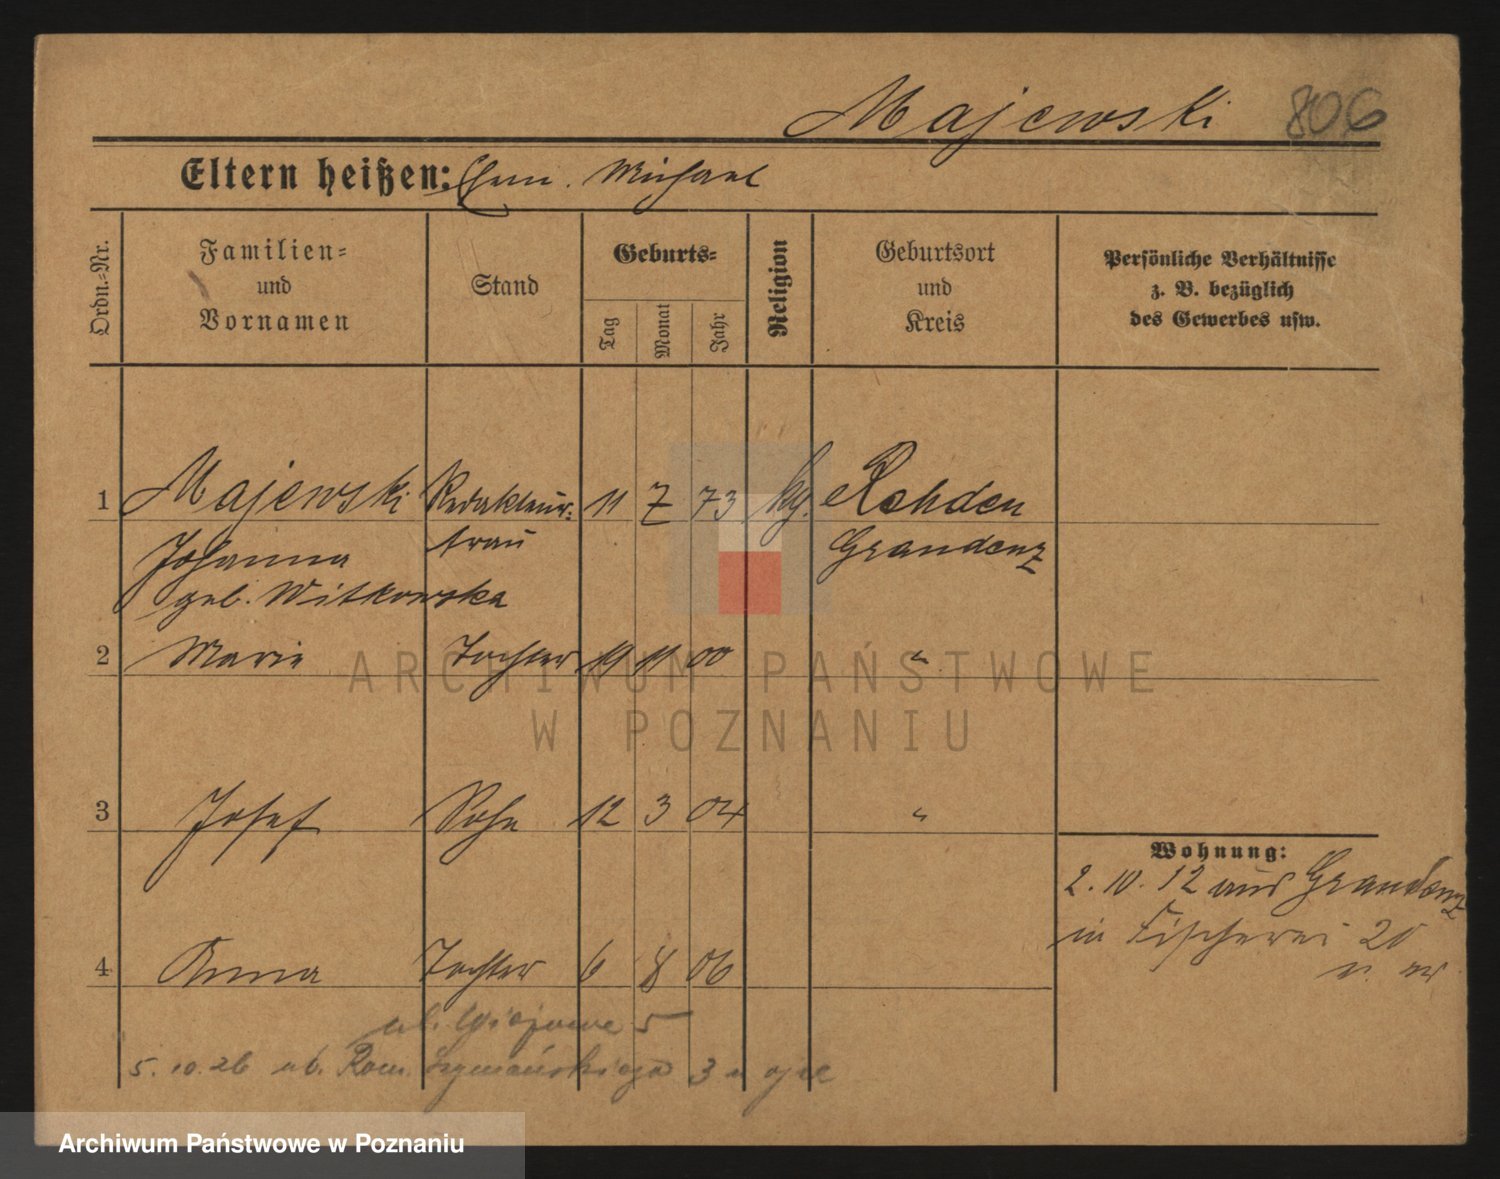 Majewski 806
Eltern heißen: Ehem. Michael
Ordn.=Nr.
Familien=
und
Vornamen
Stand
Geburts=
Tag
Monat
Jahr
Religion
Geburtsort
und
Kreis
Persönliche Verhältnisse
z. B. bezüglich
des Gewerbes usw.
1 Majewski Redakteur- 11 7 73 kg. Rehden
Johanna frau Graudenz
geb. Witkowska
2 Marie Tochter 19 11 00 "
3 Josef Sohn 12 3 04 "
Wohnung:
2. 10. 12 aus Graudenz
in Fischerei 20
4 Anna Tochter 6 8 06
ul. 5
5. 10. 26 ul. Rom. Szymańskiego 3 u ojca
ARCHIWUM PAŃSTWOWE
W POZNANIU
Archiwum Państwowe w Poznaniu